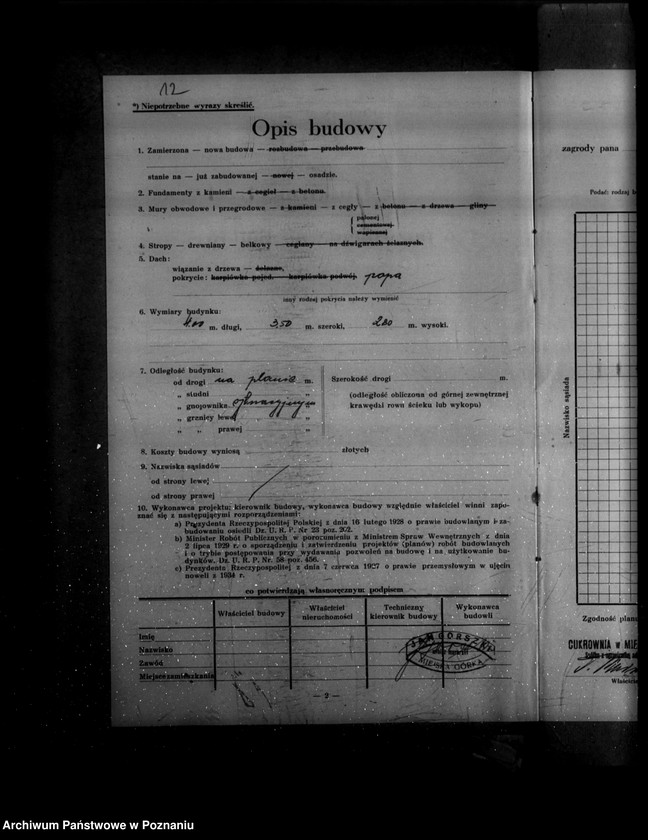 12
*) Niepotrzebne wyrazy skreślić.
Opis budowy
1. Zamierzona — nowa budowa — rozbudowa — przebudowa
stanie na — już zabudowanej — nowej — osadzie.
2. Fundamenty z kamieni — z cegieł — z betonu.
3. Mury obwodowe i przegrodowe — z kamieni — z cegły — z betonu — z drzewa — gliny
palonej
cementowej
wapiennej
4. Stropy — drewniany — belkowy — ceglany — na dźwigarach żelaznych.
5. Dach:
wiązanie z drzewa — żelazne,
pokrycie: karpiówka pojed. — karpiówka podwój. papa
inny rodzaj pokrycia należy wymienić
6. Wymiary budynku:
4.00 m. długi, 3.50 m. szeroki, 2.80 m. wysoki.
7. Odległość budynku:
od drogi na planie m.
„ studni „
„ gnojownika sytuacyjnym „
„ granicy lewej „
„ „ prawej „
Szerokość drogi m.
(odległość obliczona od górnej zewnętrznej
krawędzi rowu ścieku lub wykopu)
8. Koszty budowy wyniosą złotych
9. Nazwiska sąsiadów
od strony lewej
od strony prawej
10. Wykonawca projektu, kierownik budowy, wykonawca budowy względnie właściciel winni zapo-
znać się z następującymi rozporządzeniami:
a) Prezydenta Rzeczypospolitej Polskiej z dnia 16 lutego 1928 o prawie budowlanym i za-
budowaniu osiedli Dz. U. R. P. Nr 23 poz. 202.
b) Minister Robót Publicznych w porozumieniu z Ministrem Spraw Wewnętrznych z dnia
2 lipca 1929 r. o sporządzeniu i zatwierdzeniu projektów (planów) robót budowlanych
i o trybie postępowania przy wydawaniu pozwoleń na budowę i na użytkowanie bu-
dynków. Dz. U. R. P. Nr. 58 poz. 456.
c) Prezydenta Rzeczypospolitej z dnia 7 czerwca 1927 o prawie przemysłowym w ujęciu
noweli z 1934 r.
co potwierdzają własnoręcznym podpisem
Właściciel budowy
Właściciel nieruchomości
Techniczny kierownik budowy
Wykonawca budowli
Imię
Nazwisko
Zawód
Miejsce zamieszkania
JAN GÓRSZNY
MIEJSKA GÓRKA
— 2 —
zagrody pana
Podać: rodzaj
Nazwisko sąsiada
Zgodność planu
CUKROWNIA w MIE
Właściciel
Archiwum Państwowe w Poznaniu